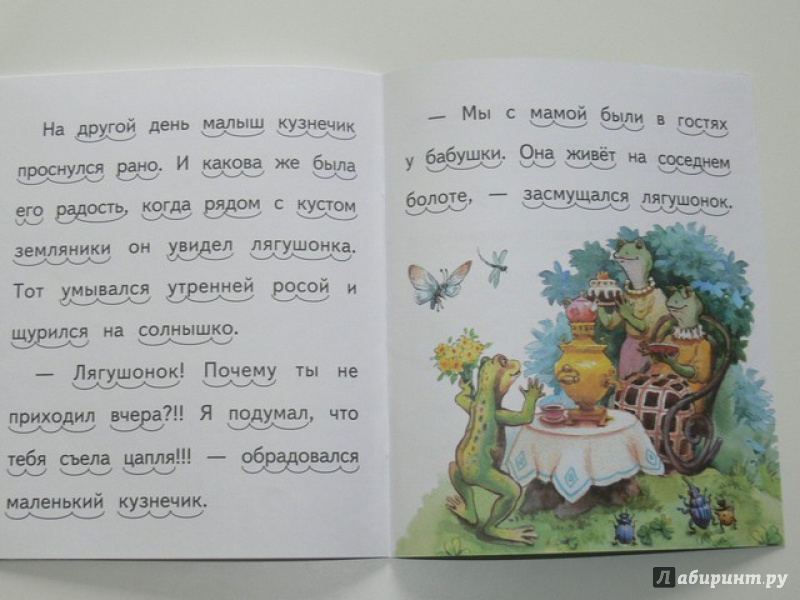 На другой день малыш кузнечик
проснулся рано. И какова же была
его радость, когда рядом с кустом
земляники он увидел лягушонка.
Тот умывался утренней росой и
щурился на солнышко.
— Лягушонок! Почему ты не
приходил вчера?!! Я подумал, что
тебя съела цапля!!! — обрадовался
маленький кузнечик.
— Мы с мамой были в гостях
у бабушки. Она живёт на соседнем
болоте, — засмущался лягушонок.
Лабиринт.ру